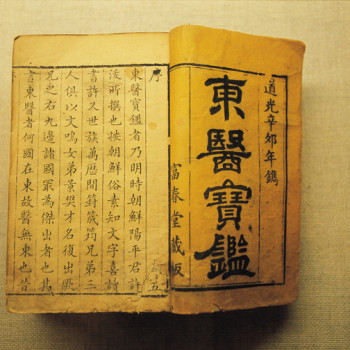 道光辛卯年鐫
東醫寶鑑
富春堂藏板
序
東醫寶鑑者乃明時朝鮮陽平君許
浚所撰也按朝鮮俗素知文字喜讀
書許又世族萬曆間篈筬筠兄弟三
人俱以文鳴女弟景樊才名復出厥
兄之右九邊諸國最為傑出者也其
言東醫者何國在東故醫言東也昔